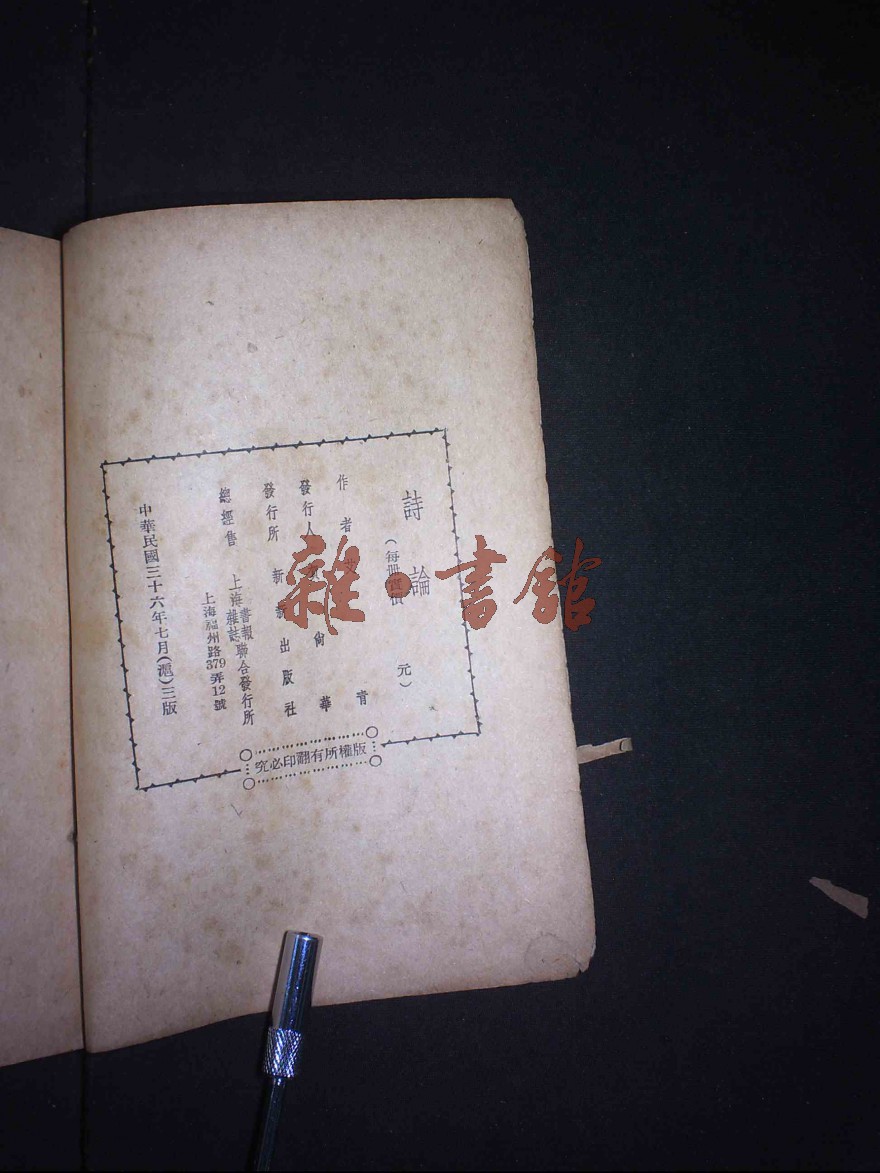 詩論
(每冊實價 元)
作者 艾青
發行人 尚華
發行所 新新出版社
總經售 上海書報雜誌聯合發行所
上海福州路379弄12號
中華民國三十六年七月(滬)三版
版權所有翻印必究
雜·書館